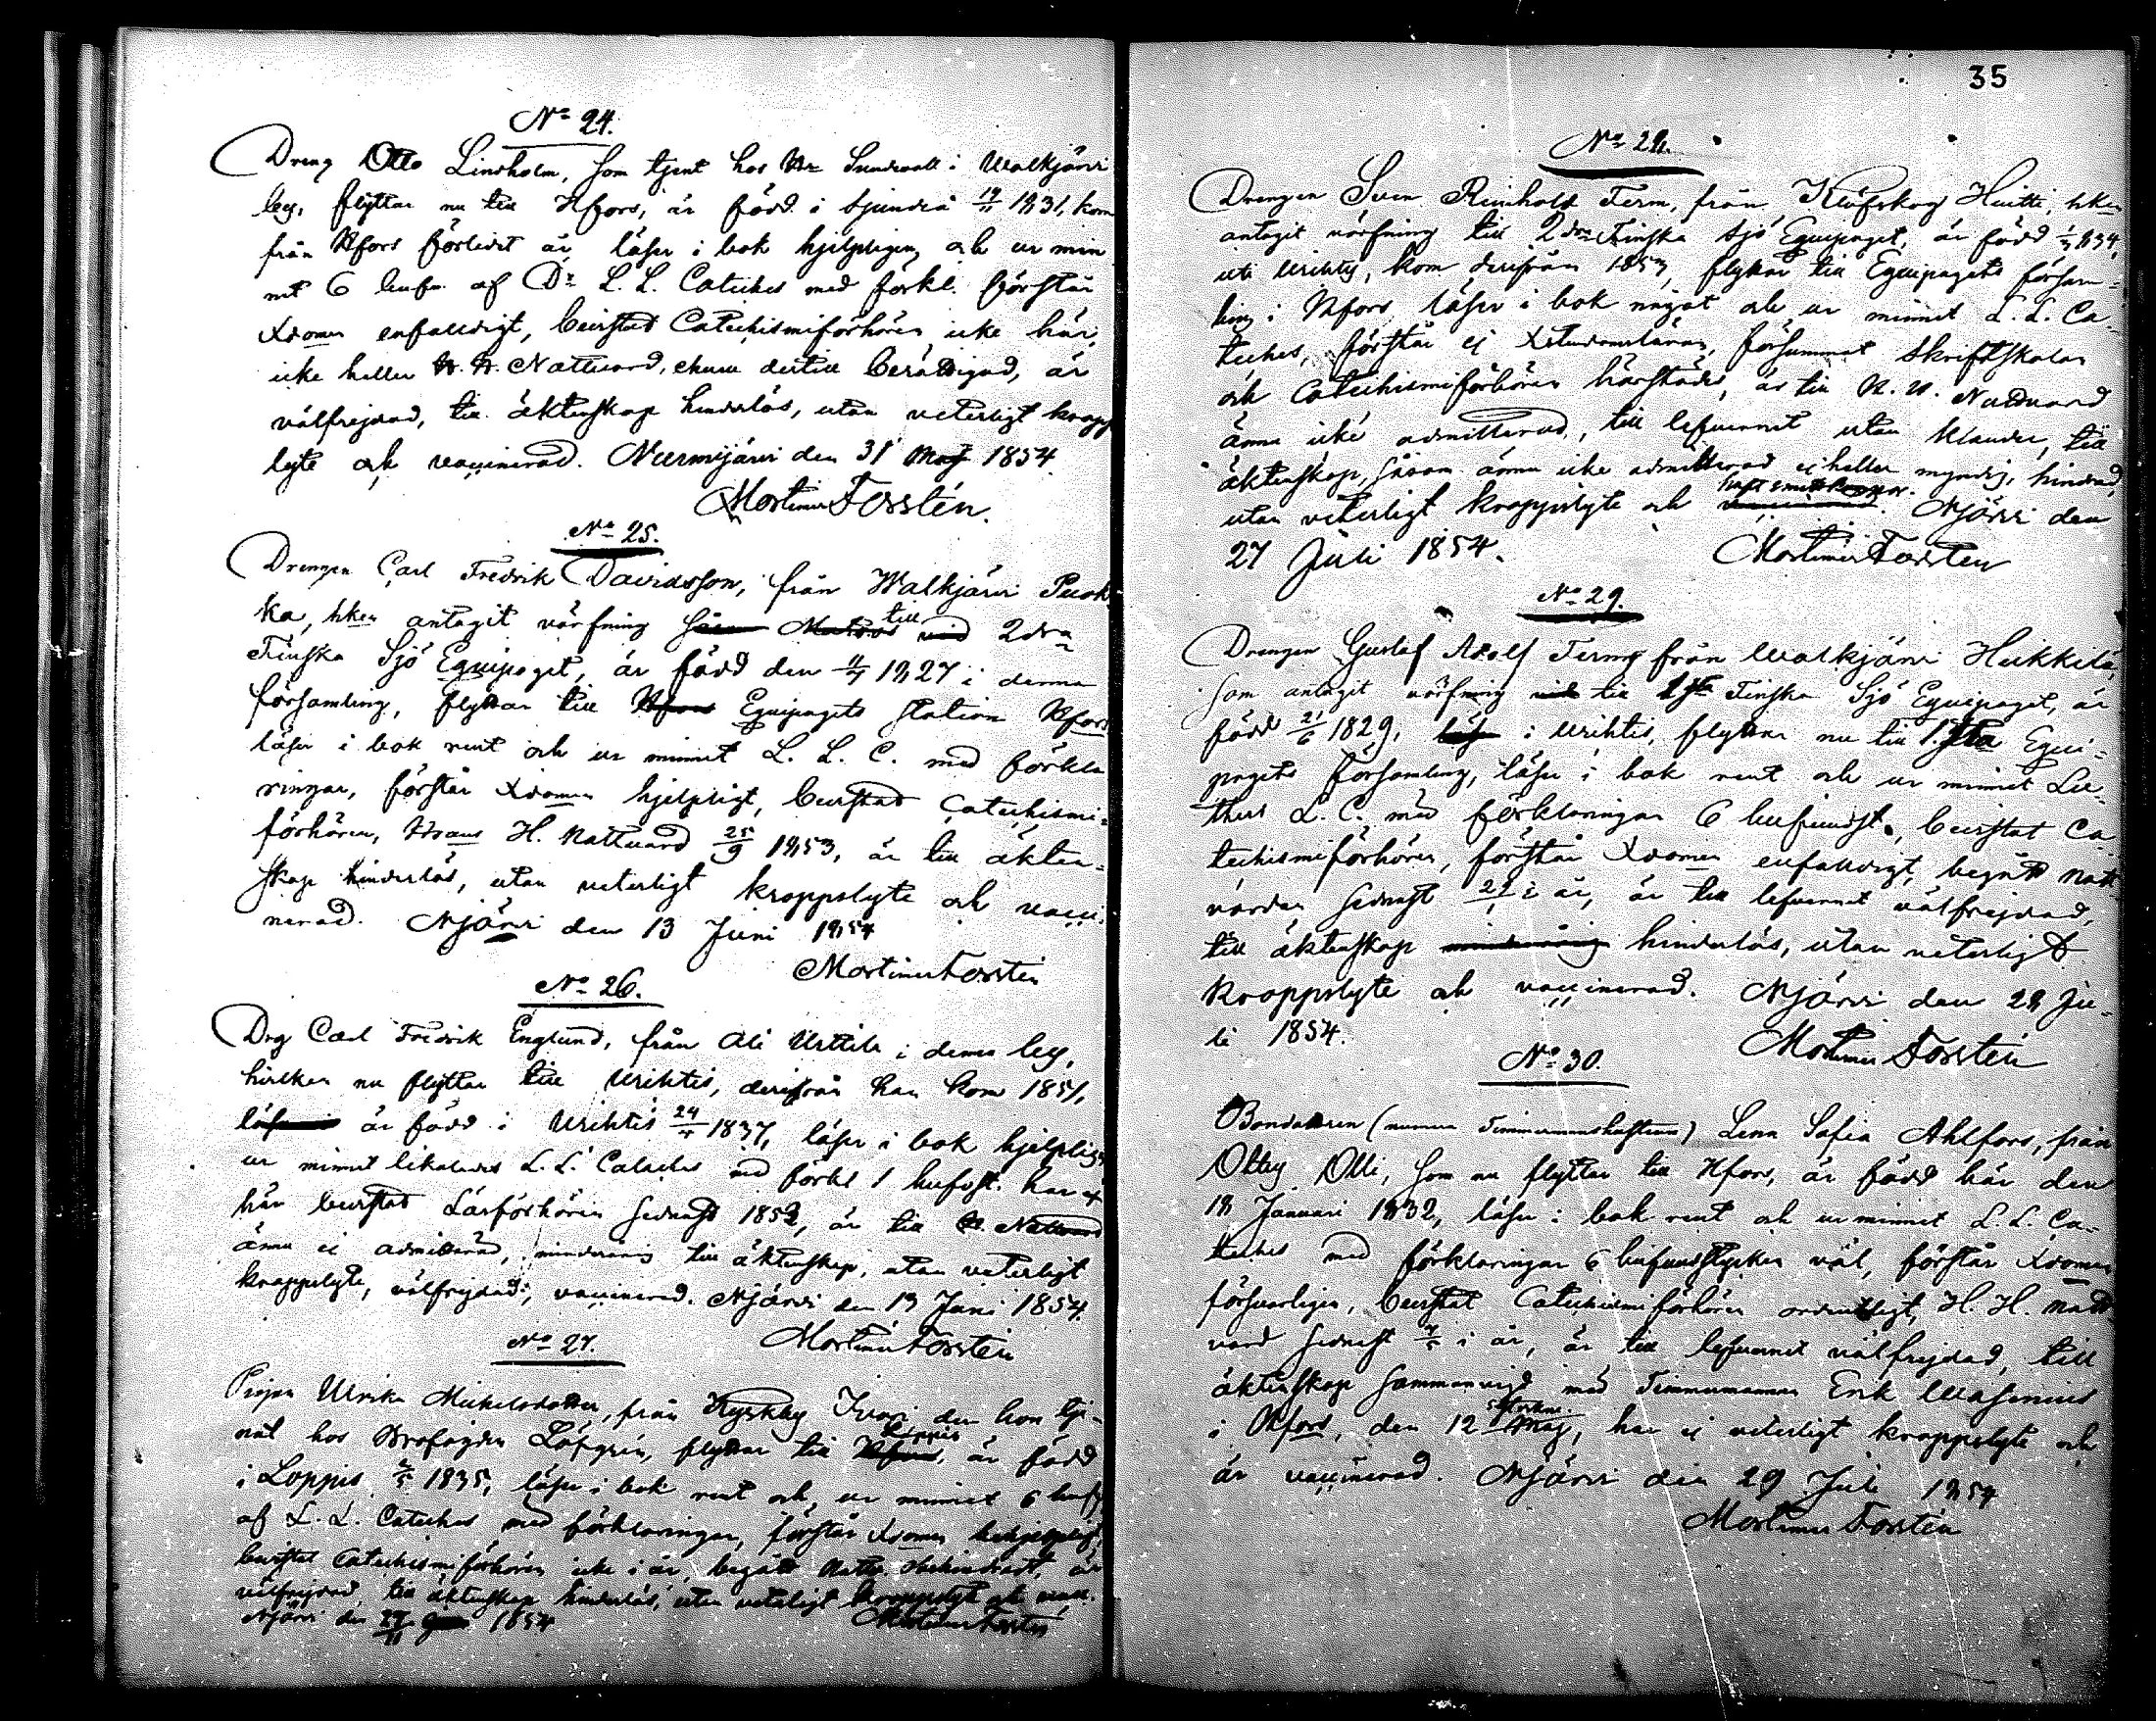 No 24.
Dreng Otto Lindholm, som tjent hos Hr Sundvall i Walkjärvi
by, flyttar nu till Hfors, är född i Sjundeå 19/11 1831, kom
från Hfors förlidet år, läser i bok hjelpligen och ur min
net 6 hufv. af Dr L. L. Catiches med förkl. förstår
Xdomen enfalldigt, bevistat Catechismiförhören icke här,
icke heller H. H. Nattvard, ehuru dertill berättigad, är
välfrejdad, till äktenskap hinderlös, utan veterligt kropps
lyte och vaccinerad. Nurmijärvi den 31 Maj 1854
Mortimer Forstén.
No 25.
Drengen Carl Fredrik Davidsson, från Walkjärvi Puok
ka, hken antagit värfning till 2dra
Finska Sjö Equipaget, är född den 11/4 1827 i denna
församling, flyttar till Equipagets station Hfors
läser i bok rent och ur minnet L. L. C. med förkla
ringar, förstår Xdomen hjelpligt, bevistat Catechismi=
förhören, H. Nattvard 25/9 1853, är till äkten=
skap hinderlös, utan veterligt kroppslyte och vacci
nerad. Njärvi den 13 Juni 1854
Mortimer Forstén
No 26.
Drg Carl Fredrik Englund, från Ali Uttila i denna by,
hvilken nu flyttar till Wichtis, derifrån han kom 1851,
är född i Wichtis 24/4 1837, läser i bok hjelpligt
ur minnet likaledes L. L. Cateches med förkl 1 hufvst. har
här bevistat Läsförhören sednast 1852, är till H. Nattvard
ännu ej admitterad, minderårig till äktenskap, utan veterligt
kroppslyte, välfrejdad, vaccinerad. Njärvi den 13 Juni 1854.
Mortimer Forstén
No 27.
Pigan Ulrika Michelsdotter, från Kyrkby Ivari, der hon tje=
nat hos Löfgrén, flyttar till Loppis, är född
i Loppis 2/5 1835, läser i bok rent och ur minnet 6 hufv
af L. L. Cateches med förklaringar, förstår Xdomen
bevistat Catechismiförhören icke i år, begått Nattv. är
välfrejdad, till äktenskap hinderlös, utan veterligt kroppslyt och vacc.
Njärvi den 1854 Mortimer Forstén
35
No 28.
Drengen Sven Reinhold Term, från Klöfskog Huitti, hken
antagit värfning till 2dra Finska Sjö Equipaget, är född 1834
uti Wichtis, kom derifrån 1853, flyttar till Equipagets försam=
ling i Hfors, läser i bok något och ur minnet L. L. Ca=
teches, förstår ej Xstendomsläran, försummat Skriftskolan
och Catechismiförhören härstädes, är till H. H. Nattvard
ännu icke admitterad, till lefvernet utan klander, till
äktenskap, såsom ännu icke admitterad ej heller myndig, hindrad,
utan veterligt kroppslyte och haft smittkoppor. Njärvi den
27 Juli 1854. Mortimer Forstén
No 29.
Drengen Gustaf Adolf Term från Walkjärvi Heikkilä,
som antagit värfning till 1sta Finska Sjö Equipaget, är
född 21/6 1829, i Wichtis, flyttar nu till 1sta Equi=
pagets församling, läser i bok rent och ur minnet Lu=
thers L. C. med förklaringar 6 hufvudst., bevistat Ca=
techismiförhören, förstår Xdomen enfalldigt, begått natt
varden sednast i år, är till lefvernet välfrejdad,
till äktenskap hinderlös, utan veterligt
kroppslyte och vaccinerad. Njärvi den 28 Ju=
li 1854. Mortimer Forstén
No 30.
Bondadottren (numera Timmermanshustrun) Lena Sofia Ahlfors, från
Olli, som nu flyttar till Hfors, är född här den
18 Januari 1832, läser i bok rent och ur minnet L. L. Ca=
teches med förklaringar 6 hufvudstycken väl, förstår Xdomen
försvarligen, bevistat Catechismiförhören ordentligt, H. H. natt
vard sednast i år, är till lefvernet välfrejdad, till
äktenskap sammanvigd med Timmermannen Erik Wasenius
i Hfors, den 12 Maj, har ej veterligt kroppslyte och
är vaccinerad. Njärvi den 29 Juli 1854
Mortimer Forstén